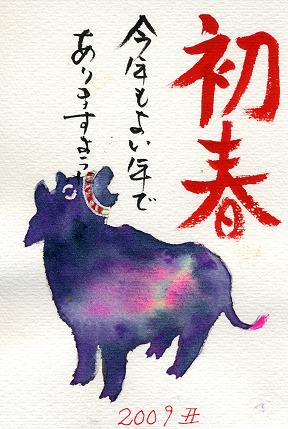 初春
今年もよい年で
ありますように
2009 丑